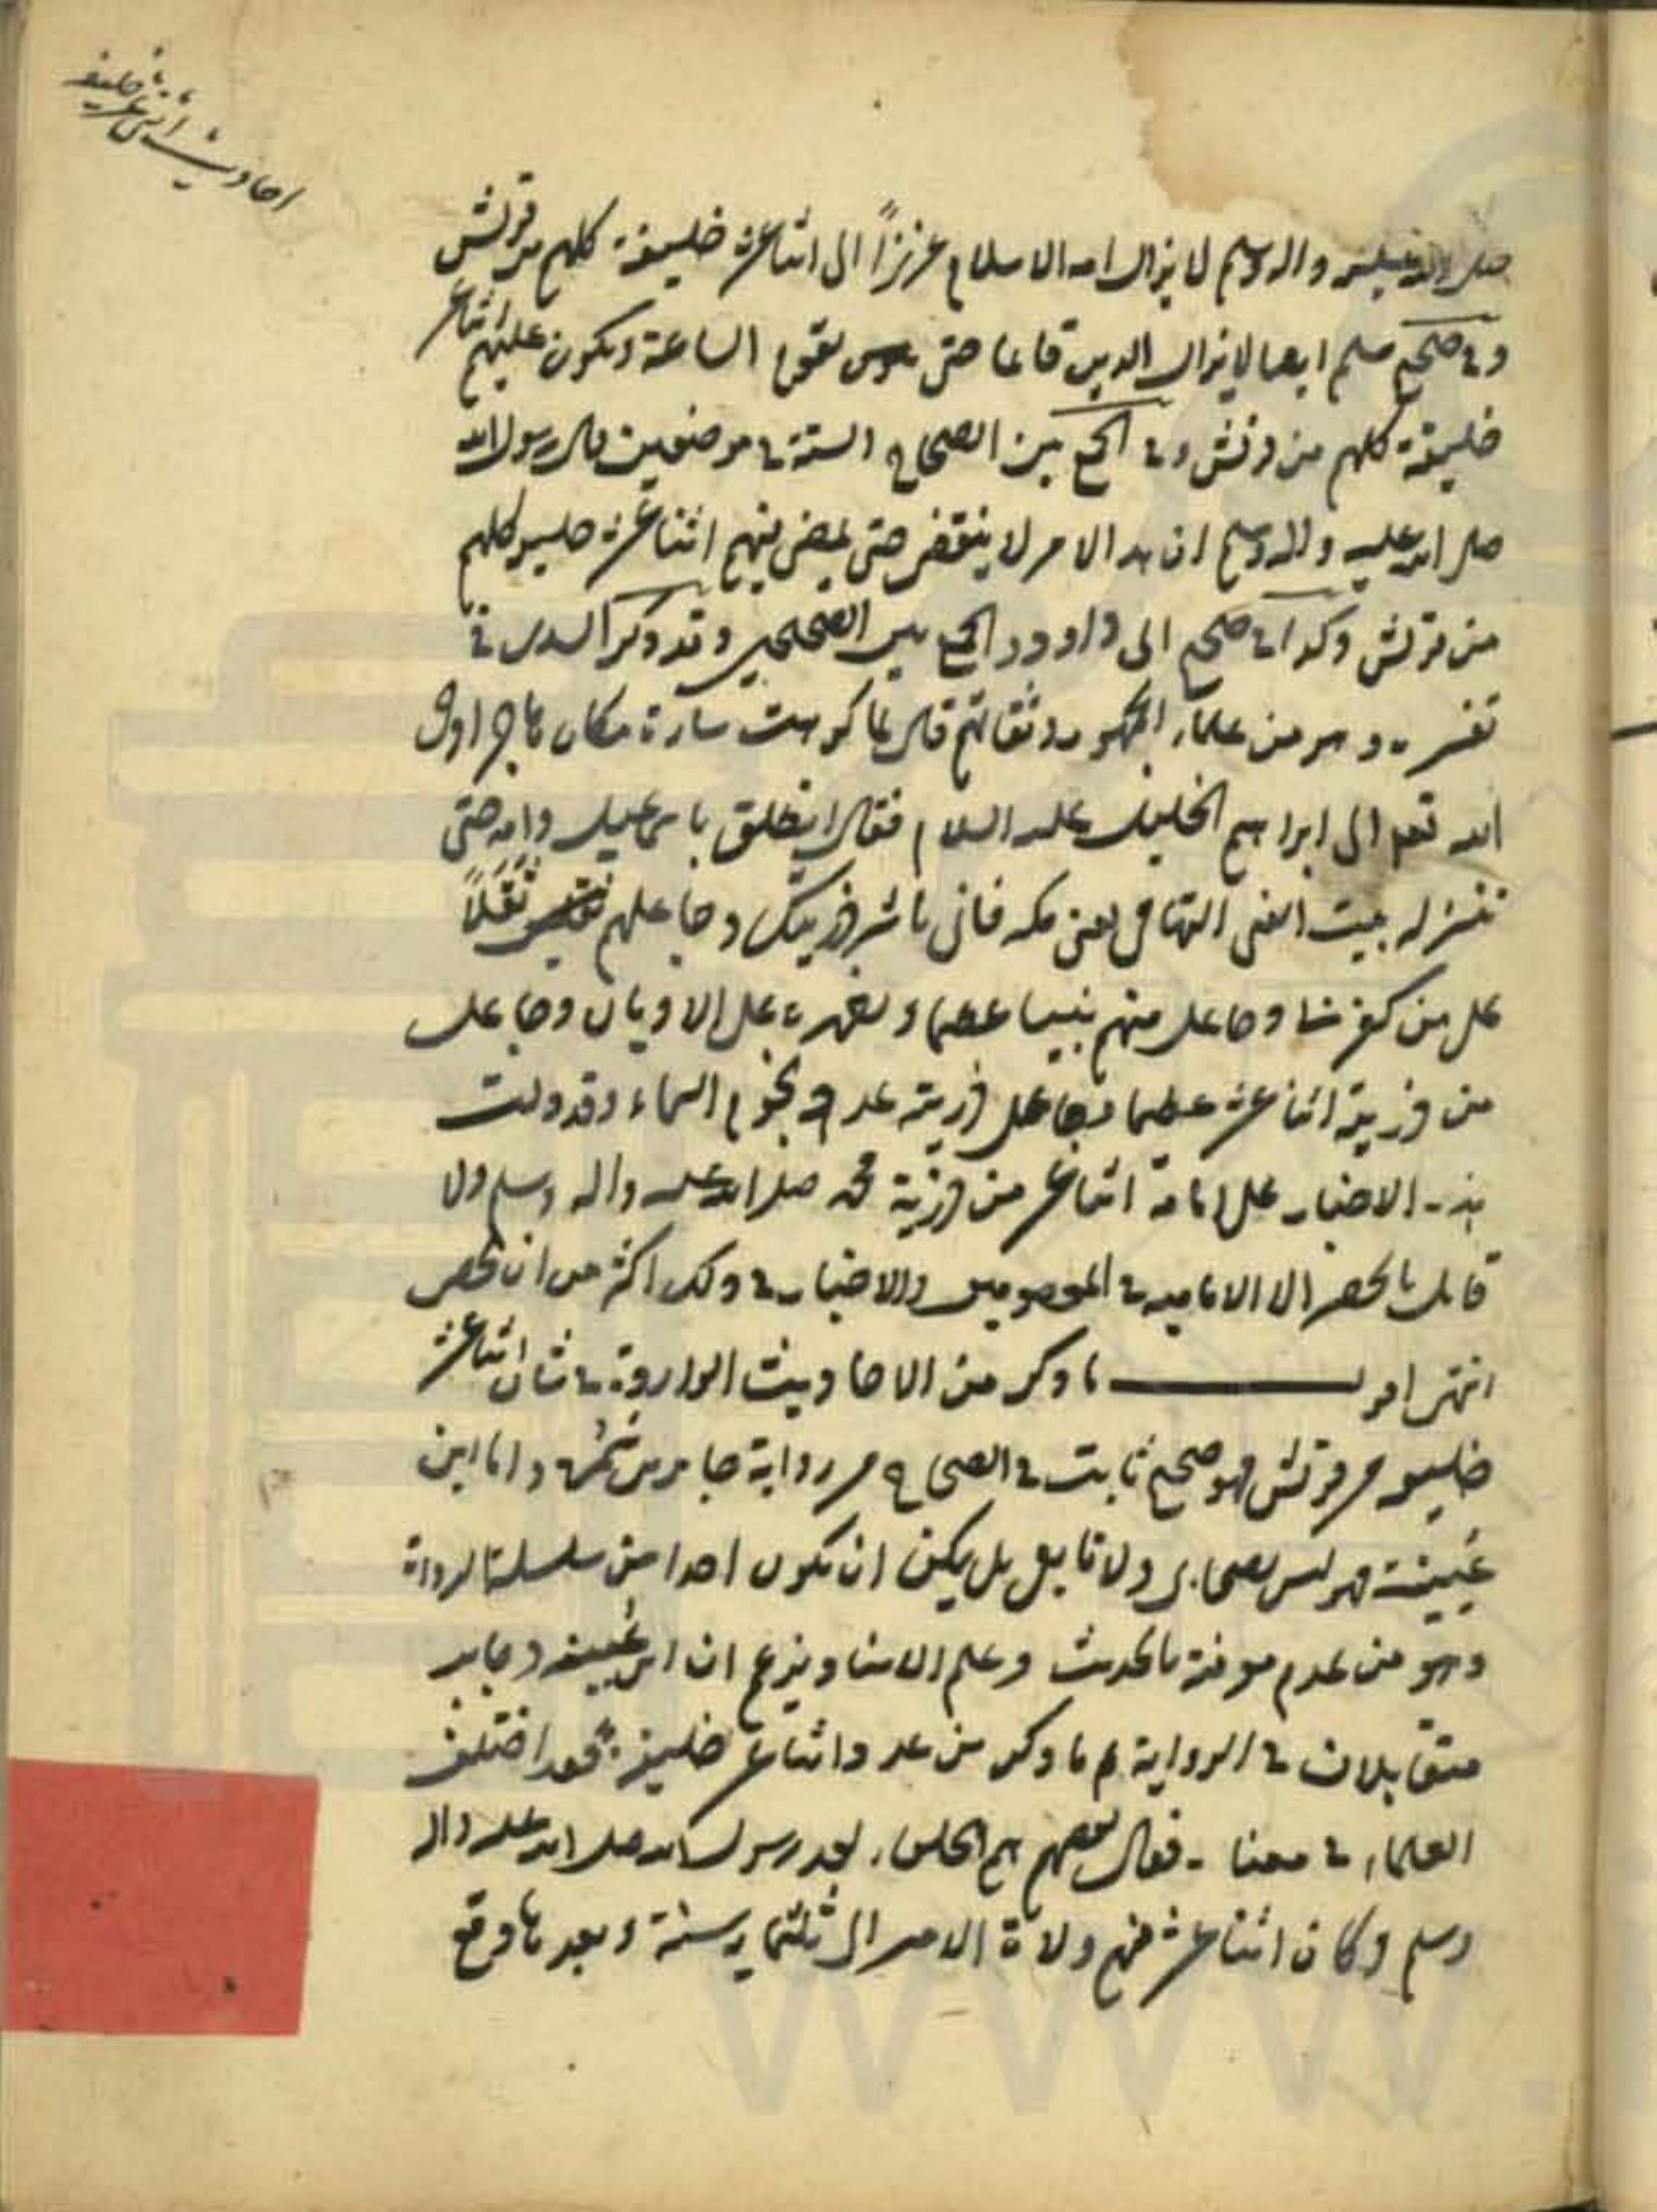 احاديث اثنى عشر خليفه
صلى الله عليه واله وسلم لا يزال امر الاسلام عزيزاً الى اثنا عشر خليفة كلهم من قريش
وفي صحيح مسلم ايضا لا يزال الدين قائما حتى تقوم الساعة ويكون عليهم اثنا عشر
خليفة كلهم من قريش وفي الجمع بين الصحاح الستة في موضعين قال رسول الله
صلى الله عليه واله وسلم ان هذا الامر لا ينقضي حتى يمضي فيهم اثنا عشر خليفة كلهم
من قريش وكذا في صحيح ابى داوود والجمع بين الصحيحين وقد ذكر السدى في
تفسيره وهو من علماء الجمهور وثقاتهم قال لما كرهت سارة مكان هاجر اوحى
الله تعالى الى ابراهيم الخليل عليه السلام فقال انطلق باسمعيل وامه حتى
تنزله بيت النبي التهامي يعني مكه فانى ناشر ذريتك وجاعلهم ثقلاً
على من كفر بنا وجاعل منهم نبيا عظيما ومظهره على الاديان وجاعل
من ذريته اثنا عشر عظيما وجاعل ذريته عدد نجوم السماء وقد دلت
هذه الاخبار على امامة اثنا عشر من ذرية محمد صلى الله عليه واله وسلم ولا
قائل بالحصر الا الامامية في المعصومين والاخبار في ذلك اكثر من ان تحصى
انتهى اقول ما ذكر من الاحاديث الواردة في شان اثنا عشر
خليفة من قريش فهو صحيح ثابت في الصحاح من رواية جابر بن سمرة واما ابن
عيينة فهو ليس بصحابى ولا تابعى بل يمكن ان يكون احدا من سلسلة الرواة
وهو من عدم معرفته بالحديث وعلم الاسناد يزعم ان ابن عيينة وجابر
متقابلان في الرواية ثم ما ذكر من عدد اثنا عشر خليفة فقد اختلف
العلماء في معناه فقال بعضهم هم الخلفاء بعد رسول الله صلى الله عليه واله
وسلم وكان اثنا عشر منهم ولاة الامر الى ثلثمايه سنة وبعدها وقع